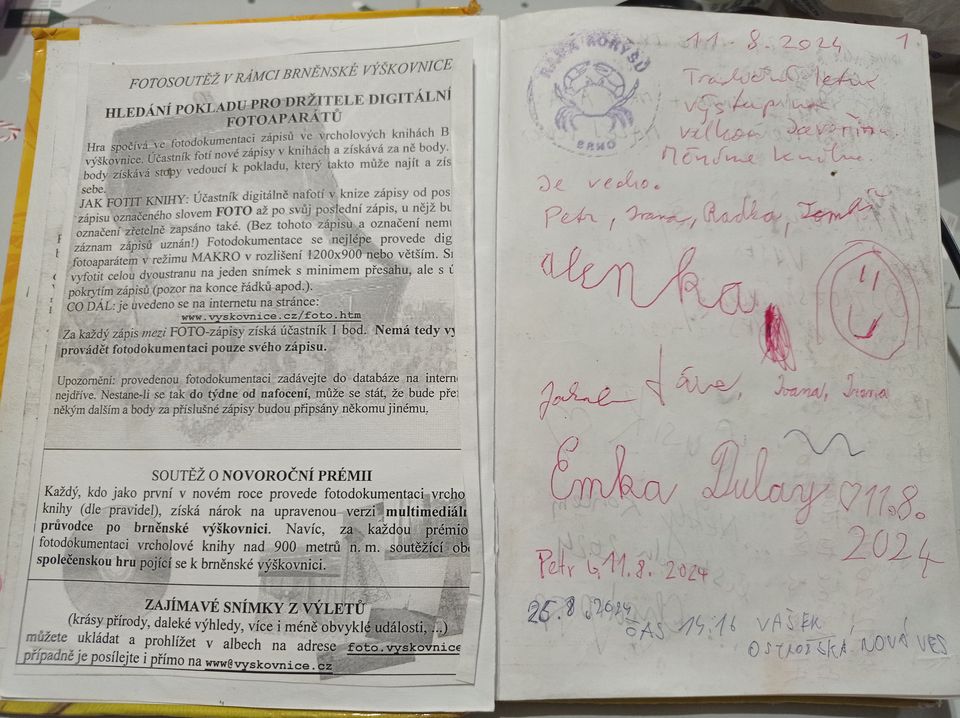 FOTOSOUTĚŽ V RÁMCI BRNĚNSKÉ VÝŠKOVNICE
HLEDÁNÍ POKLADU PRO DRŽITELE DIGITÁLNÍ
FOTOAPARÁTŮ
Hra spočívá ve fotodokumentaci zápisů ve vrcholových knihách B
výškovnice. Účastník fotí nové zápisy v knihách a získává za ně body.
body získává stopy vedoucí k pokladu, který takto může najít a zís
sebe.
JAK FOTIT KNIHY: Účastník digitálně nafotí v knize zápisy od pos
zápisu označeného slovem FOTO až po svůj poslední zápis, u nějž bu
označení zřetelně zapsáno také. (Bez tohoto zápisu a označení nem
záznam zápisů uznán!) Fotodokumentace se nejlépe provede dig
fotoaparátem v režimu MAKRO v rozlišení 1200x900 nebo větším. Sn
vyfotit celou dvoustranu na jeden snímek s minimem přesahu, ale s ú
pokrytím zápisů (pozor na konce řádků apod.).
CO DÁL: je uvedeno se na internetu na stránce:
www.vyskovnice.cz/foto.htm
Za každý zápis mezi FOTO-zápisy získá účastník 1 bod. Nemá tedy vý
provádět fotodokumentaci pouze svého zápisu.
Upozornění: provedenou fotodokumentaci zadávejte do databáze na interne
nejdříve. Nestane-li se tak do týdne od nafocení, může se stát, že bude pře
někým dalším a body za příslušné zápisy budou připsány někomu jinému.
SOUTĚŽ O NOVOROČNÍ PRÉMII
Každý, kdo jako první v novém roce provede fotodokumentaci vrcho
knihy (dle pravidel), získá nárok na upravenou verzi multimediáln
průvodce po brněnské výškovnici. Navíc, za každou prémio
fotodokumentaci vrcholové knihy nad 900 metrů n. m. soutěžící obd
společenskou hru pojící se k brněnské výškovnici.
ZAJÍMAVÉ SNÍMKY Z VÝLETŮ
(krásy přírody, daleké výhledy, více i méně obvyklé události, ...)
můžete ukládat a prohlížet v albech na adrese foto.vyskovnice
případně je posílejte i přímo na www@vyskovnice.cz
RADA KORYŠŮ
BRNO
11. 8. 2024 1
výstup na
Měníme knihu.
Je vedro.
Petr, Ivana, Radka, Tomáš
alenka
Ivana, Ivana
Emka Dulay ♡ 11.8.
2024
Petr 11.8. 2024
25.8.2024
ČAS 14:16 VAŠEK
OSTROŽSKÁ NOVÁ VES